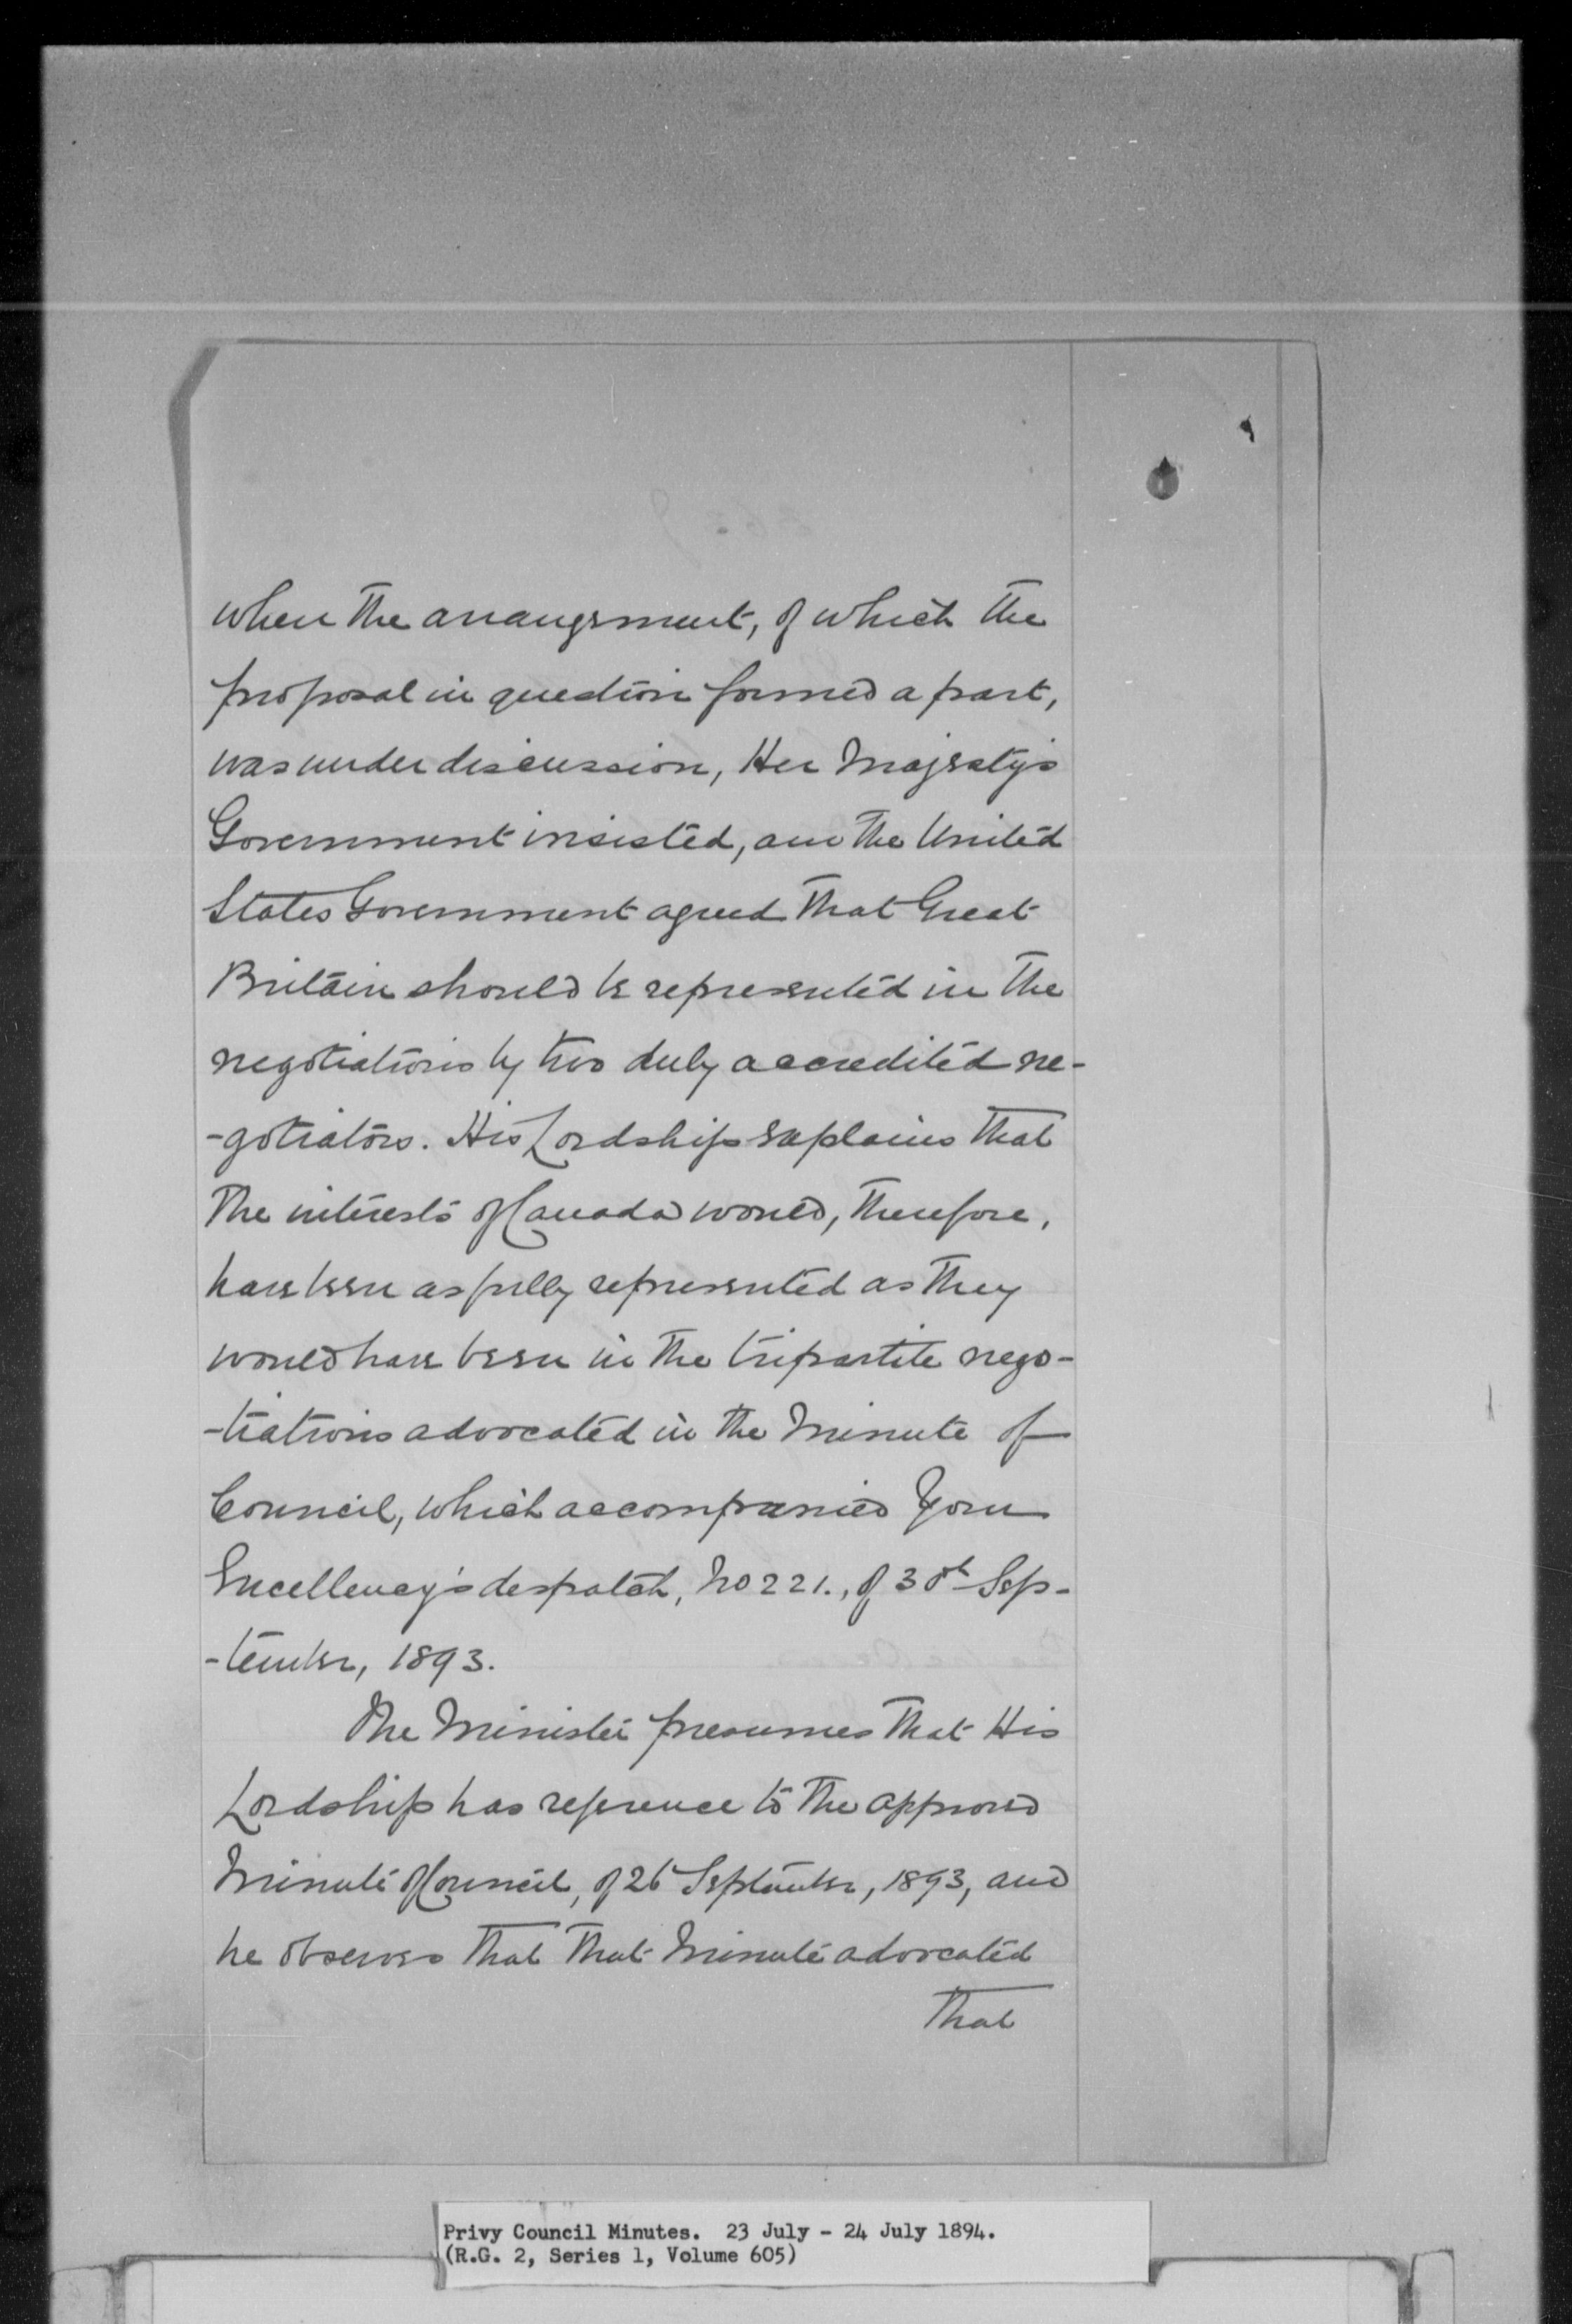 when the arrangement, of which the
proposal in question formed a part,
was under discussion, Her Majesty's
Government insisted, and the United
States Government agreed that Great
Britain should be represented in the
negotiations by two duly accredited ne-
-gotiators. His Lordship explains that
the interests of Canada would, therefore,
have been as fully represented as they
would have been in the tripartite nego-
-tiations advocated in the Minute of
Council, which accompanied Your
Excellency's despatch, No 221., of 30th Sep-
-tember, 1893.
The Minister presumes that His
Lordship has reference to the approved
Minute of Council, of 26 September, 1893, and
he observes that that Minute advocated
that
Privy Council Minutes. 23 July - 24 July 1894.
(R.G. 2, Series 1, Volume 605)